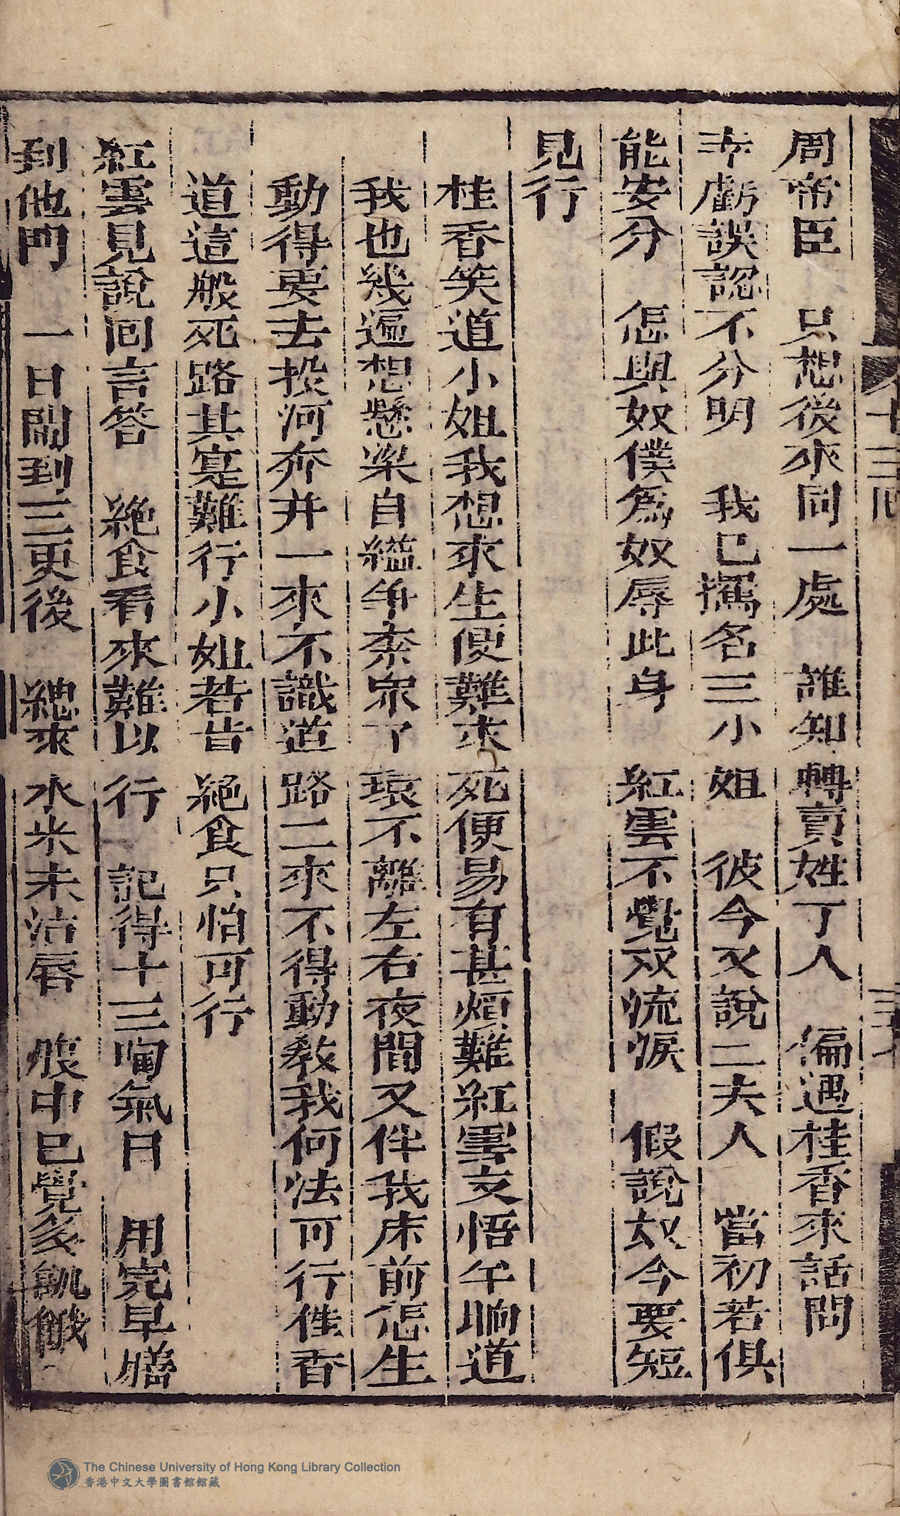 十三回
三十七
周帝臣　只想後來同一處　誰知轉賣姓丁人　偏遇桂香來話問
幸虧誤認不分明　我已攜名三小姐　彼今又說二夫人　當初若俱
能安分　怎與奴僕為奴辱此身　紅雲不覺双流淚　假說奴今要短
見行
桂香笑道小姐我想求生便難求死便易有甚煩難紅雲支悟午晌道
我也幾遍想懸梁自縊争柰衆了環不離左右夜間又伴我床前怎生
動得要去投河奔井一來不識道路二來不得動教我何法可行桂香
道這般死路其寔難行小姐若肯絕食只怕可行
紅雲見說回言答　絕食看來難以行　記得十三啕氣日　用完早膳
到他門　一日鬧到三更後　總來水米未沾唇　腹中已覺多飢餓
The Chinese University of Hong Kong Library Collection
香港中文大學圖書館館藏